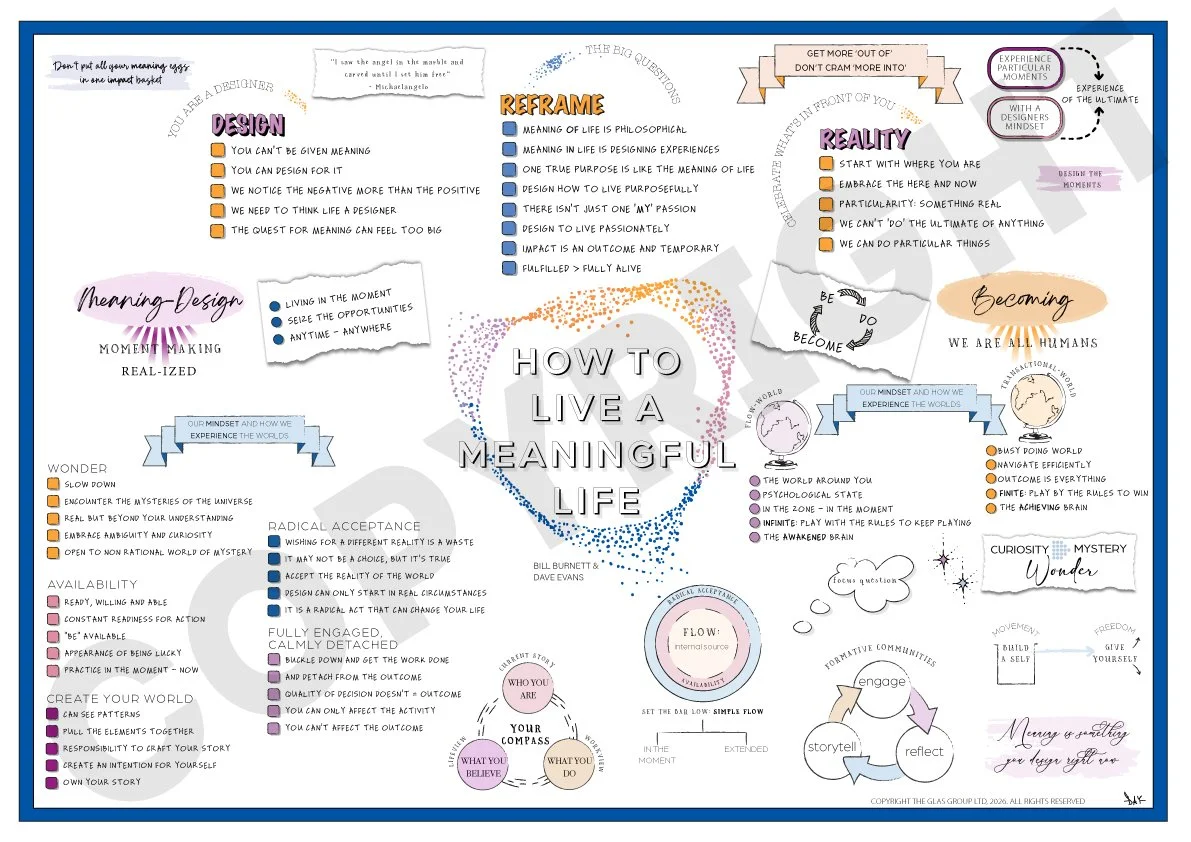 Don't put all your meaning eggs
in one impact basket
"I saw the angel in the marble and
carved until I set him free"
- Michaelangelo
YOU ARE A DESIGNER
DESIGN
YOU CAN'T BE GIVEN MEANING
YOU CAN DESIGN FOR IT
WE NOTICE THE NEGATIVE MORE THAN THE POSITIVE
WE NEED TO THINK LIFE A DESIGNER
THE QUEST FOR MEANING CAN FEEL TOO BIG
THE BIG QUESTIONS
REFRAME
MEANING OF LIFE IS PHILOSOPHICAL
MEANING IN LIFE IS DESIGNING EXPERIENCES
ONE TRUE PURPOSE IS LIKE THE MEANING OF LIFE
DESIGN HOW TO LIVE PURPOSEFULLY
THERE ISN'T JUST ONE 'MY' PASSION
DESIGN TO LIVE PASSIONATELY
IMPACT IS AN OUTCOME AND TEMPORARY
FULFILLED > FULLY ALIVE
GET MORE 'OUT OF'
DON'T CRAM 'MORE INTO'
CELEBRATE WHAT'S IN FRONT OF YOU
REALITY
START WITH WHERE YOU ARE
EMBRACE THE HERE AND NOW
PARTICULARITY: SOMETHING REAL
WE CAN'T 'DO' THE ULTIMATE OF ANYTHING
WE CAN DO PARTICULAR THINGS
EXPERIENCE
PARTICULAR
MOMENTS
WITH A
DESIGNERS
MINDSET
EXPERIENCE
OF THE ULTIMATE
DESIGN THE
MOMENTS
Meaning-Design
MOMENT MAKING
REAL-IZED
LIVING IN THE MOMENT
SEIZE THE OPPORTUNITIES
ANYTIME - ANYWHERE
HOW TO
LIVE A
MEANINGFUL
LIFE
BILL BURNETT &
DAVE EVANS
BE
DO
BECOME
Becoming
WE ARE ALL HUMANS
OUR MINDSET AND HOW WE
EXPERIENCE THE WORLDS
WONDER
SLOW DOWN
ENCOUNTER THE MYSTERIES OF THE UNIVERSE
REAL BUT BEYOND YOUR UNDERSTANDING
EMBRACE AMBIGUITY AND CURIOSITY
OPEN TO NON RATIONAL WORLD OF MYSTERY
AVAILABILITY
READY, WILLING AND ABLE
CONSTANT READINESS FOR ACTION
"BE" AVAILABLE
APPEARANCE OF BEING LUCKY
PRACTICE IN THE MOMENT - NOW
CREATE YOUR WORLD
CAN SEE PATTERNS
PULL THE ELEMENTS TOGETHER
RESPONSIBILITY TO CRAFT YOUR STORY
CREATE AN INTENTION FOR YOURSELF
OWN YOUR STORY
RADICAL ACCEPTANCE
WISHING FOR A DIFFERENT REALITY IS A WASTE
IT MAY NOT BE A CHOICE, BUT IT'S TRUE
ACCEPT THE REALITY OF THE WORLD
DESIGN CAN ONLY START IN REAL CIRCUMSTANCES
IT IS A RADICAL ACT THAT CAN CHANGE YOUR LIFE
FULLY ENGAGED,
CALMLY DETACHED
BUCKLE DOWN AND GET THE WORK DONE
AND DETACH FROM THE OUTCOME
QUALITY OF DECISION DOESN'T = OUTCOME
YOU CAN ONLY AFFECT THE ACTIVITY
YOU CAN'T AFFECT THE OUTCOME
CURRENT STORY
WHO YOU
ARE
YOUR
COMPASS
LIFEVIEW
WHAT YOU
BELIEVE
WHAT YOU
DO
WORKVIEW
RADICAL ACCEPTANCE
FLOW:
internal source
AVAILABILITY
SET THE BAR LOW: SIMPLE FLOW
IN THE
MOMENT
EXTENDED
FLOW-WORLD
OUR MINDSET AND HOW WE
EXPERIENCE THE WORLDS
TRANSACTIONAL-WORLD
THE WORLD AROUND YOU
PSYCHOLOGICAL STATE
IN THE ZONE - IN THE MOMENT
INFINITE: PLAY WITH THE RULES TO KEEP PLAYING
THE AWAKENED BRAIN
BUSY DOING WORLD
NAVIGATE EFFICIENTLY
OUTCOME IS EVERYTHING
FINITE: PLAY BY THE RULES TO WIN
THE ACHIEVING BRAIN
focus question
CURIOSITY MYSTERY
Wonder
MOVEMENT
BUILD
A SELF
FREEDOM
GIVE
YOURSELF
FORMATIVE COMMUNITIES
engage
storytell
reflect
Meaning is something
you design right now
COPYRIGHT THE GLAS GROUP LTD, 2026. ALL RIGHTS RESERVED
DAK
COPYRIGHT